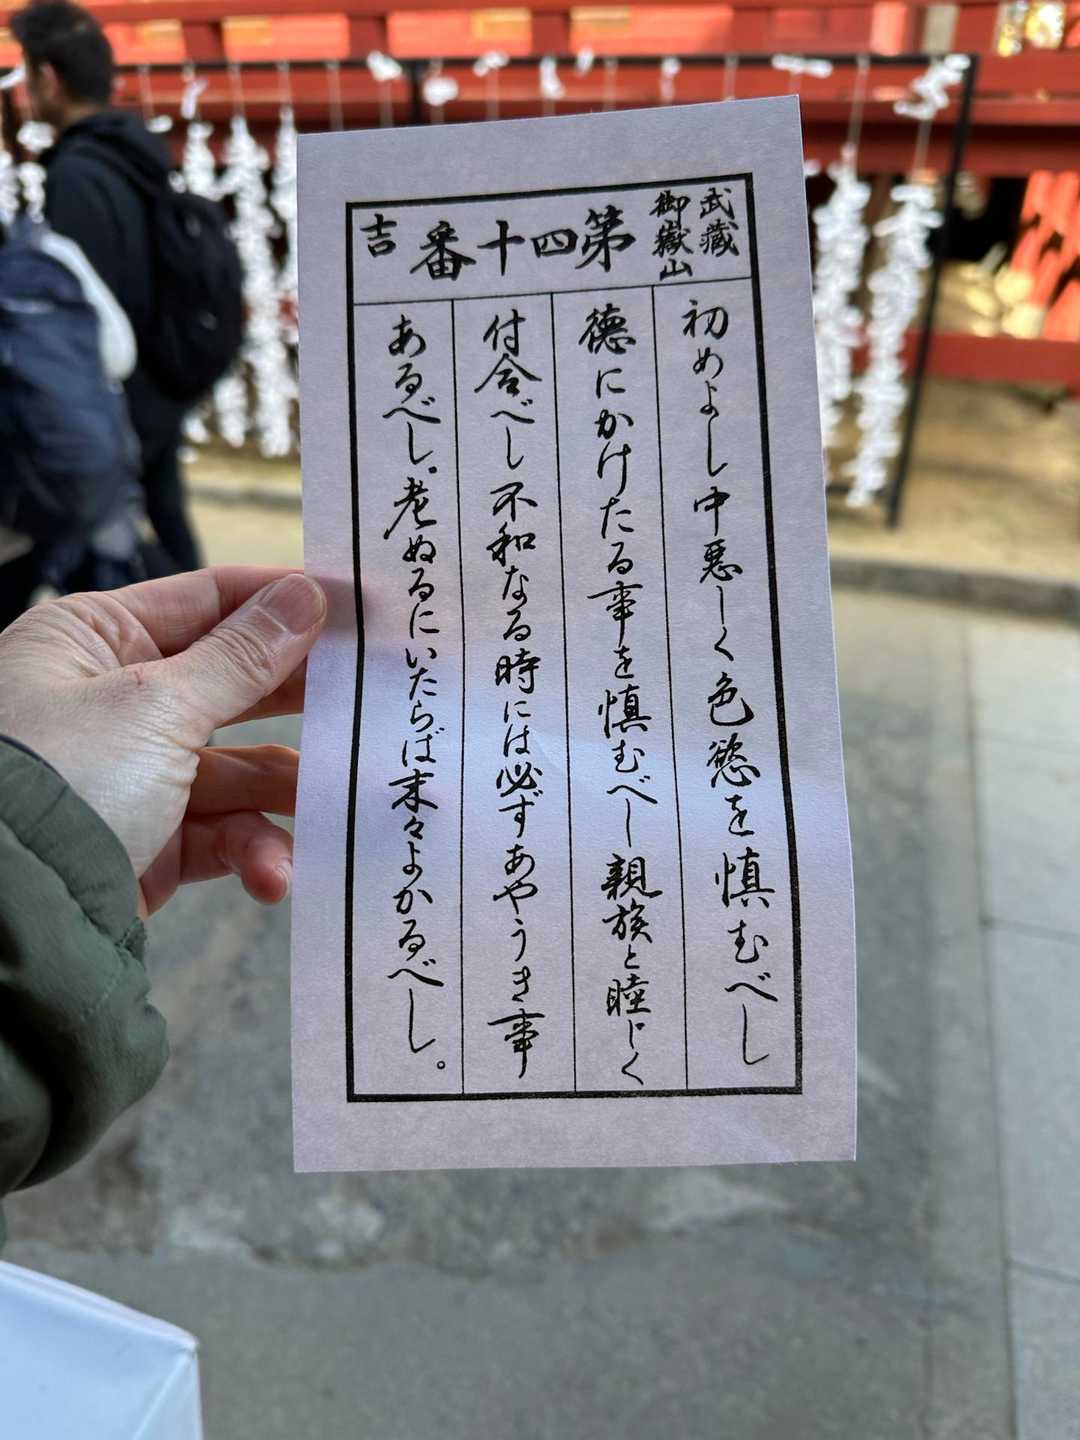 武蔵
御嶽山
第四十番
吉
初めよし中悪しく色慾を慎むべし
徳にかけたる事を慎むべし親族と睦じく
付合べし不和なる時には必ずあやうき事
あるべし。老ぬるにいたらば末々よかるべし。